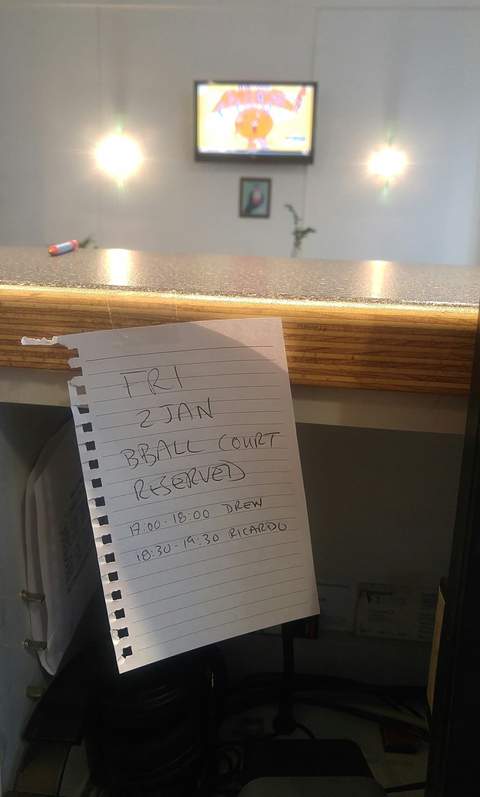 FRI
2 JAN
BBALL COURT
RESERVED
17:00-18:00 DREW
18:30-19:30 RICARDO